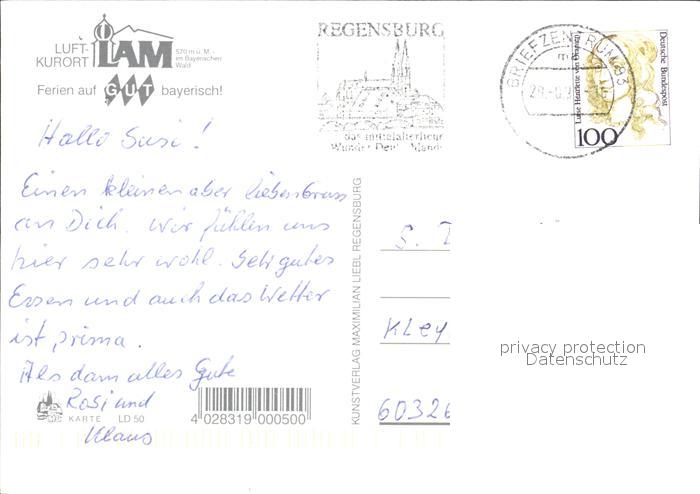 LUFT-
KURORT LAM 570 m ü. M. - im Bayerischen Wald
Ferien auf GUT bayerisch!
REGENSBURG
das mittelalterliche
Wunder Deutschlands
BRIEFZENTRUM 93
Deutsche Bundespost
Luise Henriette von Oranien
100
Hallo Susi!
Einen kleinen aber lieben Gruss
an Dich. Wir fühlen uns
hier sehr wohl. Sehr gutes
Essen und auch das Wetter
ist prima.
Als dann alles Gute
Rosi und
Klaus
KARTE LD 50
4 028319 000500
KUNSTVERLAG MAXIMILIAN LIEBL REGENSBURG
S.
Kley
60326
privacy protection
Datenschutz